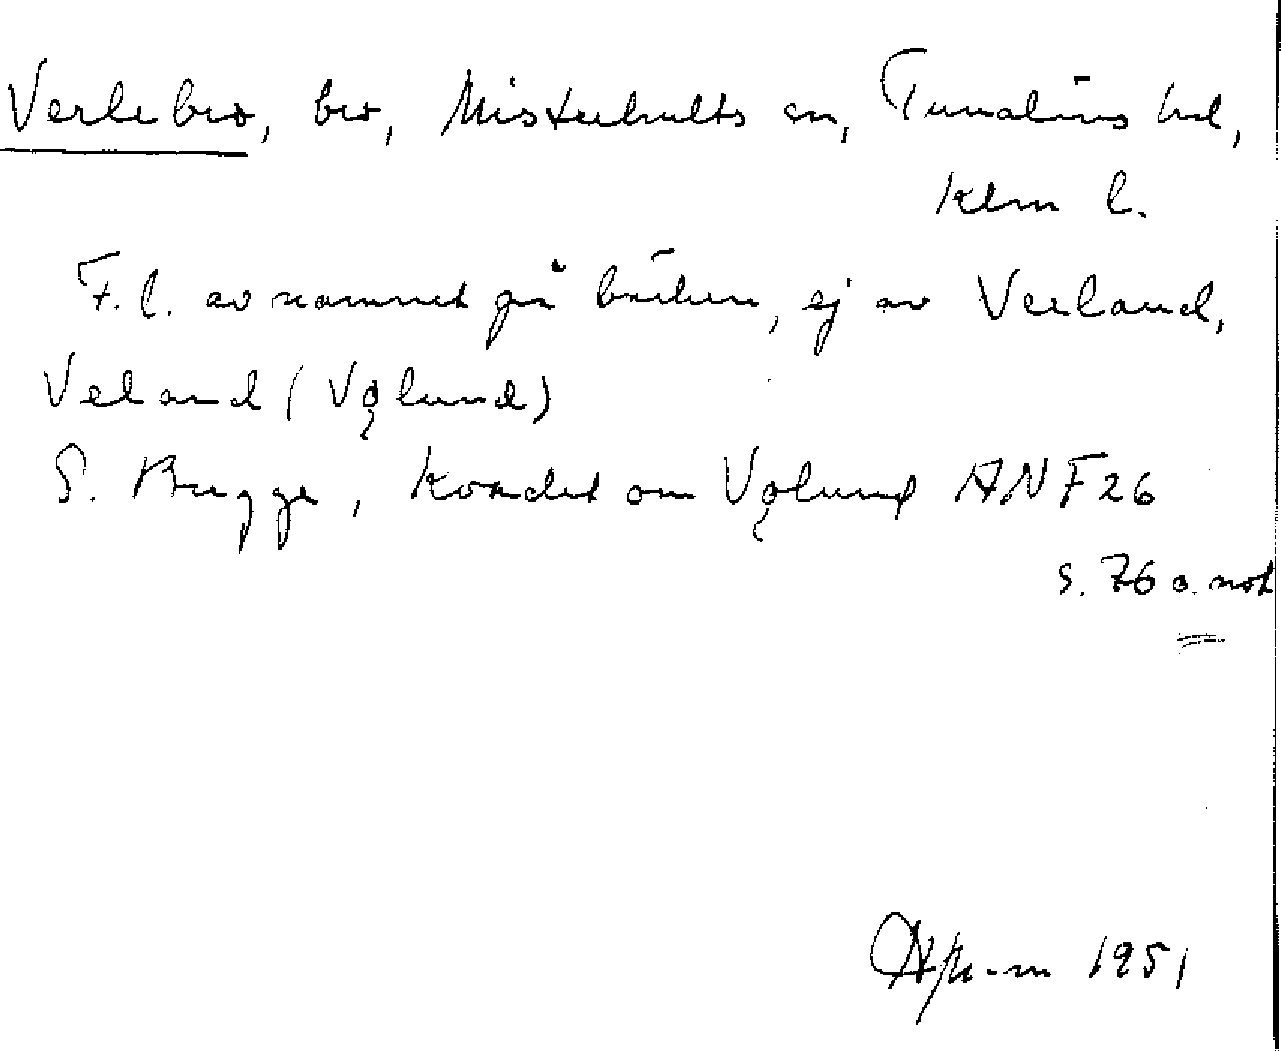 Verlebro, bro, Misterhults sn, Tunaläns hd,
Klm l.
F.l. av namnet på bäcken, ej av Verland,
Veland (Vǫlund)
S. Bugge, Kvadet om Vǫlund ANF 26
s. 76 o. not
1951